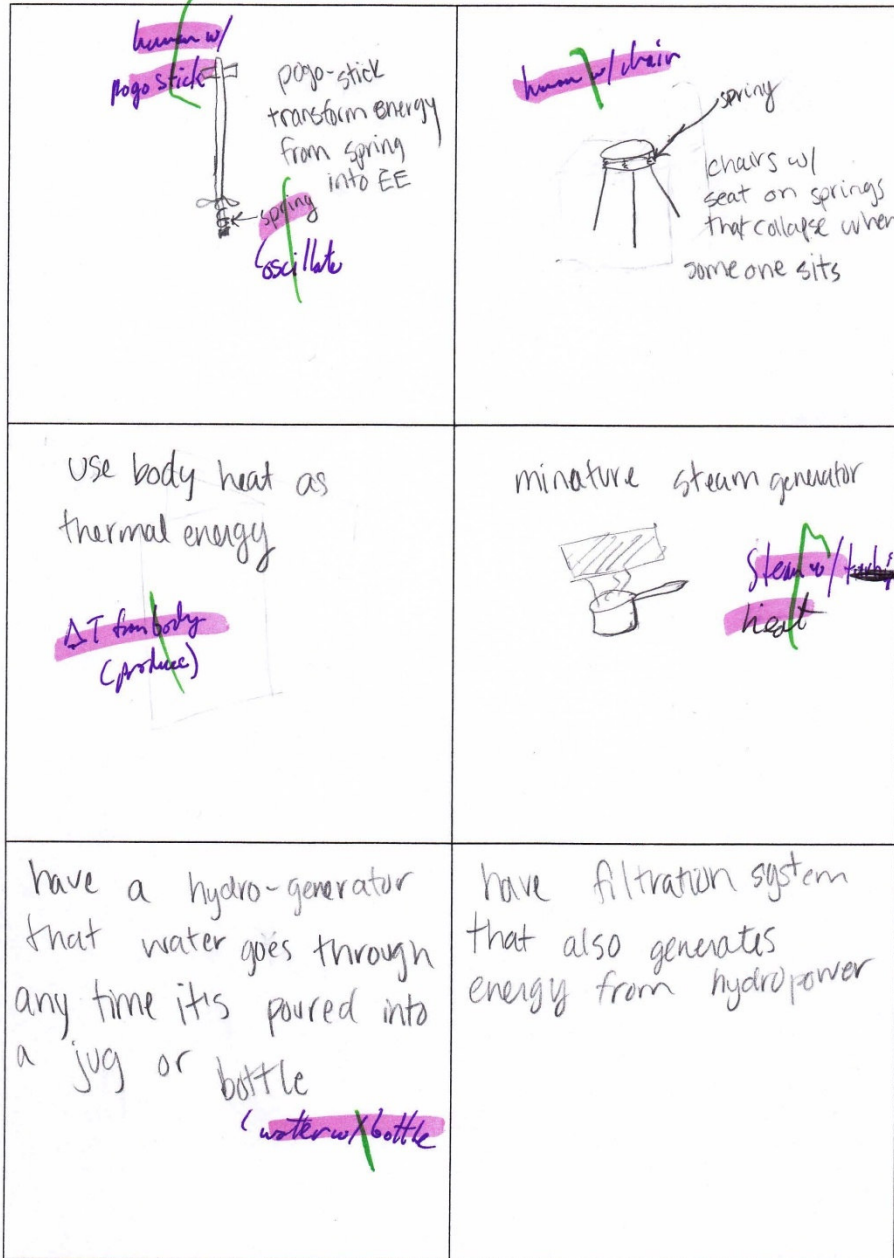 human w/
pogo stick
pogo-stick
transform energy
from spring
into EE
spring
(oscillate
human w/ chair
spring
chairs w/
seat on springs
that collapse when
someone sits
use body heat as
thermal energy
ΔT from body
(produce)
minature steam generator
steam w/
heat
have a hydro-generator
that water goes through
any time it's poured into
a jug or bottle
(water w/ bottle
have filtration system
that also generates
energy from hydropower